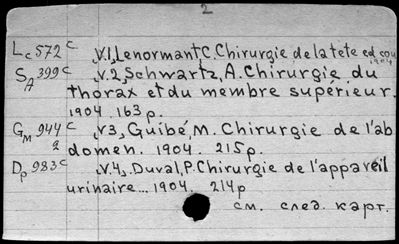 2
Lc 572 c ,V.1, Lenormant C. Chirurgie de la tete ed cou
1904
SA 399 c ,V.2, Schwartz, A. Chirurgie du
thorax et du membre supérieur.
1904 163 p.
GM 944 c ,V3, Guibé, M. Chirurgie de l'ab
2 domen. 1904. 215 p.
Dp 983 c ,V.4, Duval, P. Chirurgie de l'appareil
urinaire... 1904. 214 p
см. след. карт.